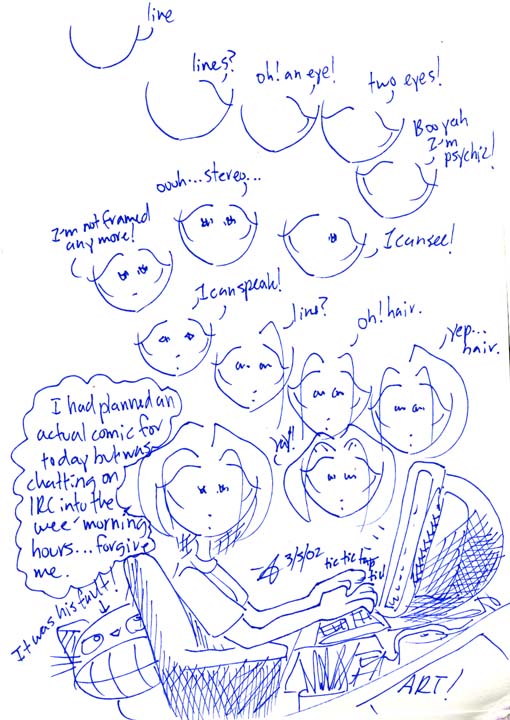 line
lines?
oh! an eye!
two eyes!
Booyah
I'm
psychic!
oouh...stereo...
I'm not framed
any more!
I can see!
I can speak!
line?
oh! hair.
yep...
hair.
yay!
I had planned an
actual comic for
today but was
chatting on
IRC into the
wee morning
hours...forgive
me.
3/3/02
tic tic tap
tic
It was his fault!
ART!